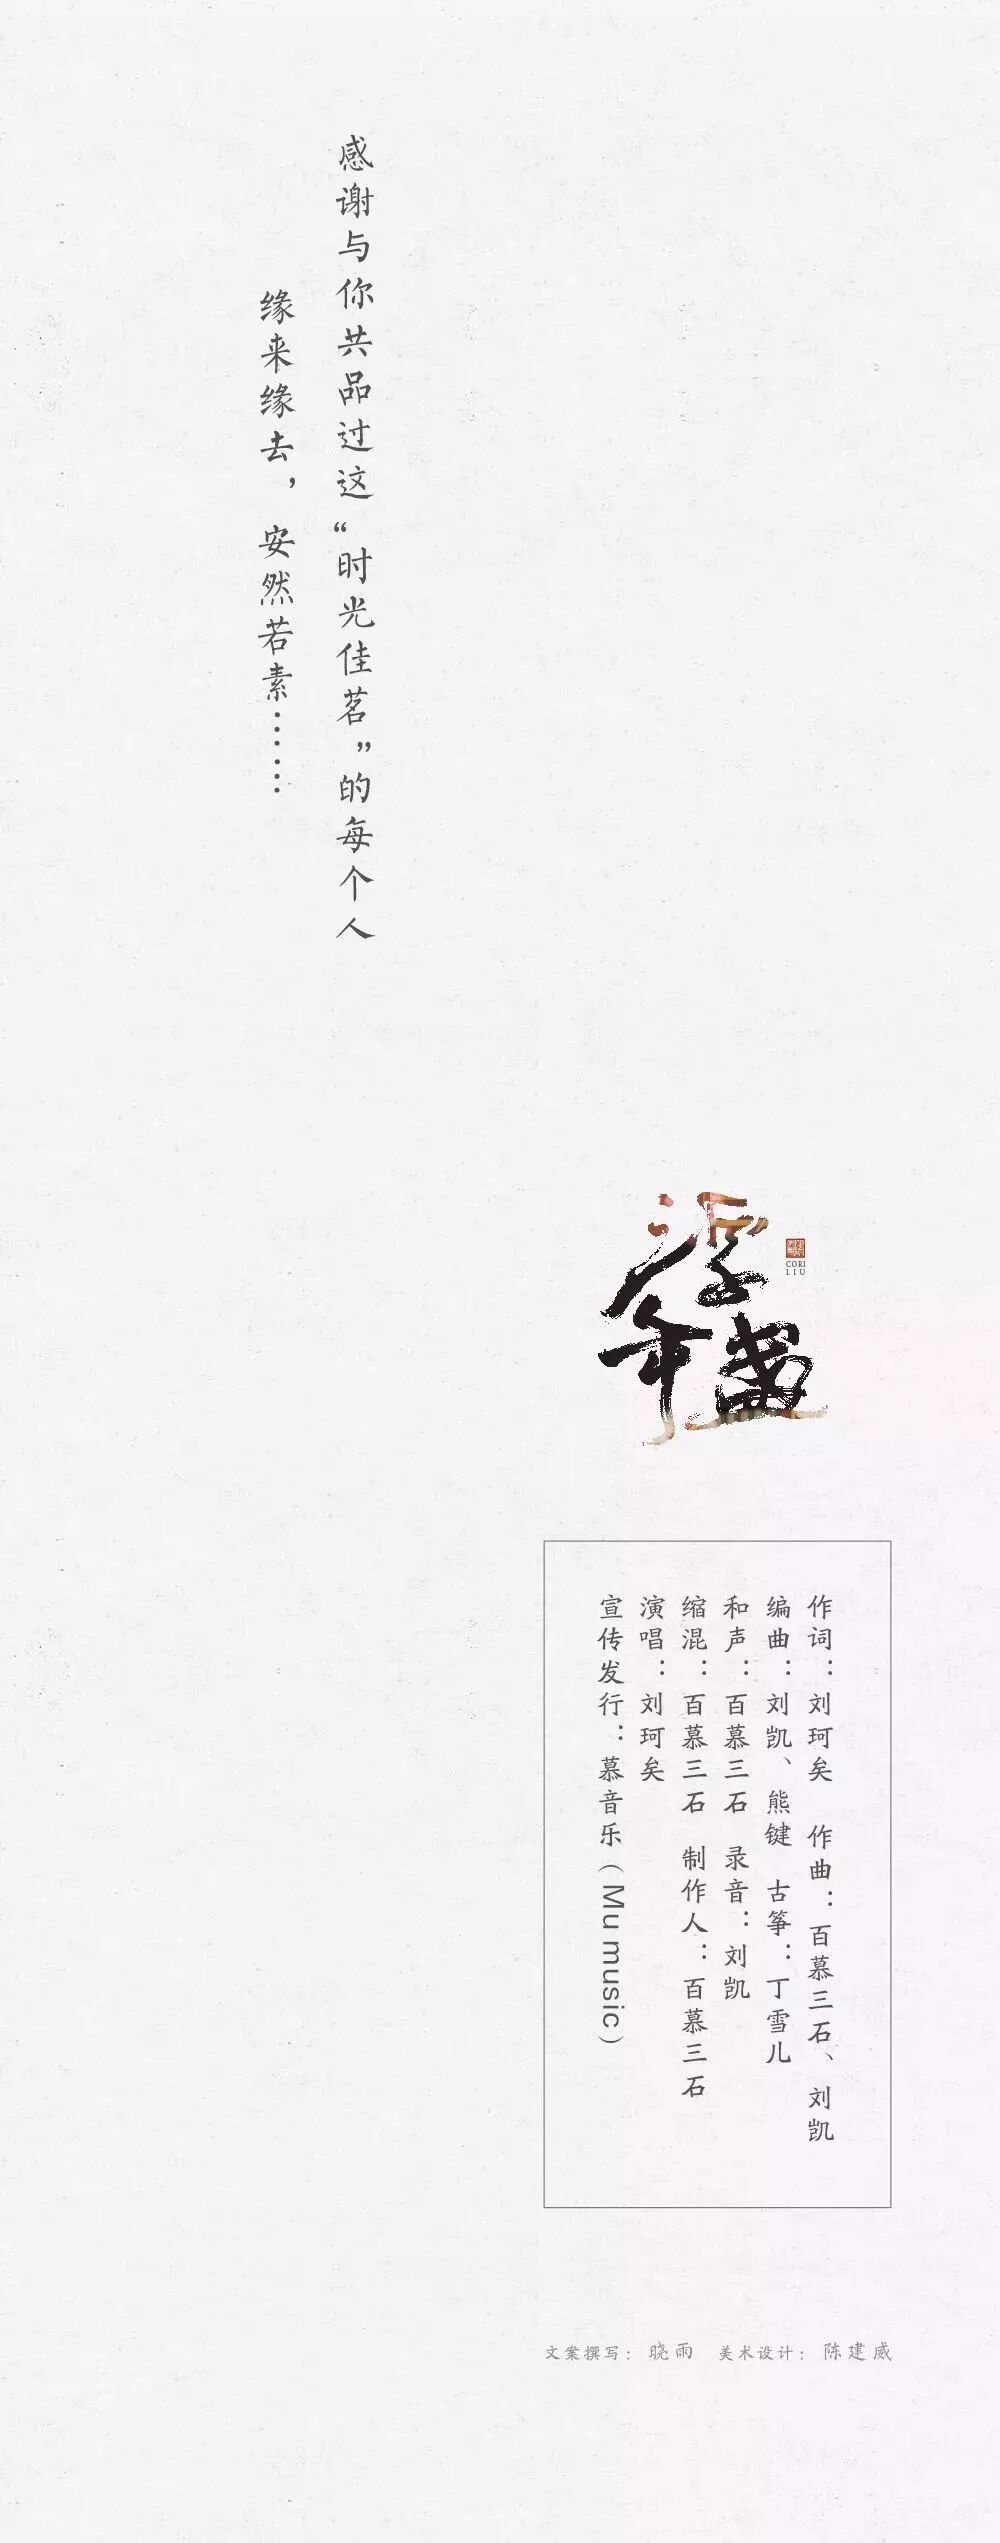 感谢与你共品过这“时光佳茗”的每个人
缘来缘去，安然若素……
浮年盏
CORI
LIU
作词：刘珂矣 作曲：百慕三石、刘凯
编曲：刘凯、熊键 古筝：丁雪儿
和声：百慕三石 录音：刘凯
缩混：百慕三石 制作人：百慕三石
演唱：刘珂矣
宣传发行：慕音乐（Mu music）
文案撰写：晓雨 美术设计：陈建威